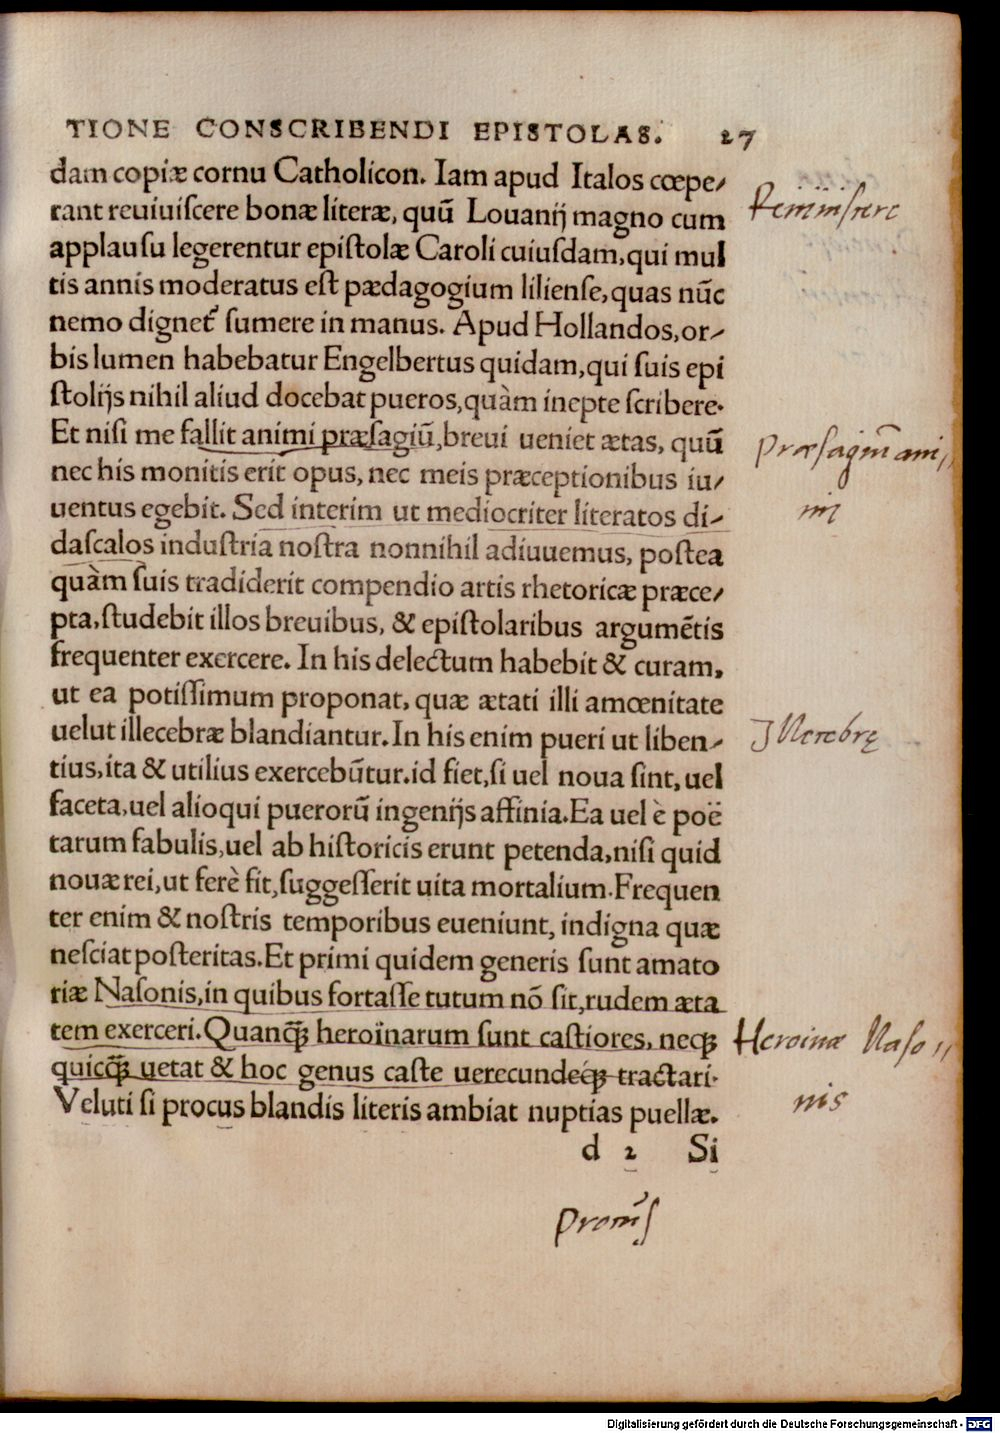 TIONE CONSCRIBENDI EPISTOLAS. 27
dam copiæ cornu Catholicon. Iam apud Italos cœpe⸗
rant reuiuiſcere bonæ literæ, quū Louanij magno cum
applauſu legerentur epiſtolæ Caroli cuiuſdam, qui mul
tis annis moderatus eſt pædagogium lilienſe, quas nūc
nemo dignet᷑ ſumere in manus. Apud Hollandos, or⸗
bis lumen habebatur Engelbertus quidam, qui ſuis epi
ſtolijs nihil aliud docebat pueros, quàm inepte ſcribere.
Et niſi me fallit animi præſagiū, breui ueniet ætas, quū
nec his monitis erit opus, nec meis præceptionibus iu⸗
uentus egebit. Sed interim ut mediocriter literatos di⸗
daſcalos induſtria noſtra nonnihil adiuuemus, poſtea
quàm ſuis tradiderit compendio artis rhetoricæ præce⸗
pta, ſtudebit illos breuibus, & epiſtolaribus argumētis
frequenter exercere. In his delectum habebit & curam,
ut ea potiſſimum proponat, quæ ætati illi amœnitate
uelut illecebræ blandiantur. In his enim pueri ut liben⸗
tius, ita & utilius exercebūtur. id fiet, ſi uel noua ſint, uel
faceta, uel alioqui puerorū ingenijs affinia. Ea uel è poë
tarum fabulis, uel ab hiſtoricis erunt petenda, niſi quid
nouæ rei, ut ferè fit, ſuggeſſerit uita mortalium. Frequen
ter enim & noſtris temporibus eueniunt, indigna quæ
neſciat poſteritas. Et primi quidem generis ſunt amato
riæ Naſonis, in quibus fortaſſe tutum nō ſit, rudem æta
tem exerceri. Quanq̃ꝫ heroinarum ſunt caſtiores, neqꝫ
quicq̃ꝫ uetat & hoc genus caſte uerecundeéqꝫ tractari.
Veluti ſi procus blandis literis ambiat nuptias puellæ.
d 2 Si
præſagiū ani,,
mi
Illecebrę
Heroinæ Naſo,,
nis
Digitalisierung gefördert durch die Deutsche Forschungsgemeinschaft - DFG